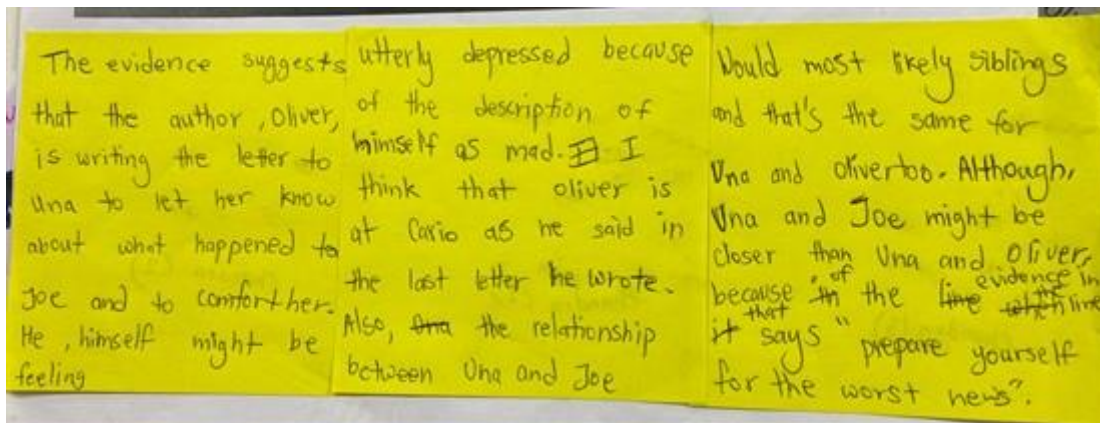 The evidence suggests
that the author, Oliver,
is writing the letter to
Una to let her know
about what happened to
Joe and to comfort her.
He, himself might be
feeling
utterly depressed because
of the description of
himself as mad. I
think that oliver is
at Cario as he said in
the last letter he wrote.
Also, the relationship
between Una and Joe
Would most likely siblings
and that's the same for
Una and oliver too. Although,
Una and Joe might be
closer than Una and Oliver,
because of the evidence in the line
that says "prepare yourself
for the worst news".